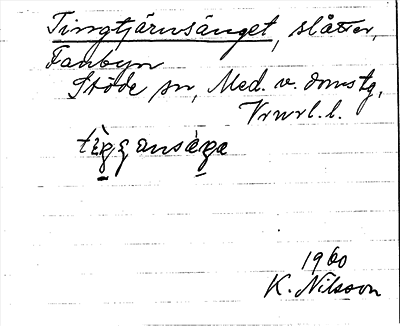 Tingtjärnsänget, slåtter,
Fanbyn
Stöde sn, Med. v. domstg,
Vrnrl. l.
1960
K. Nilsson